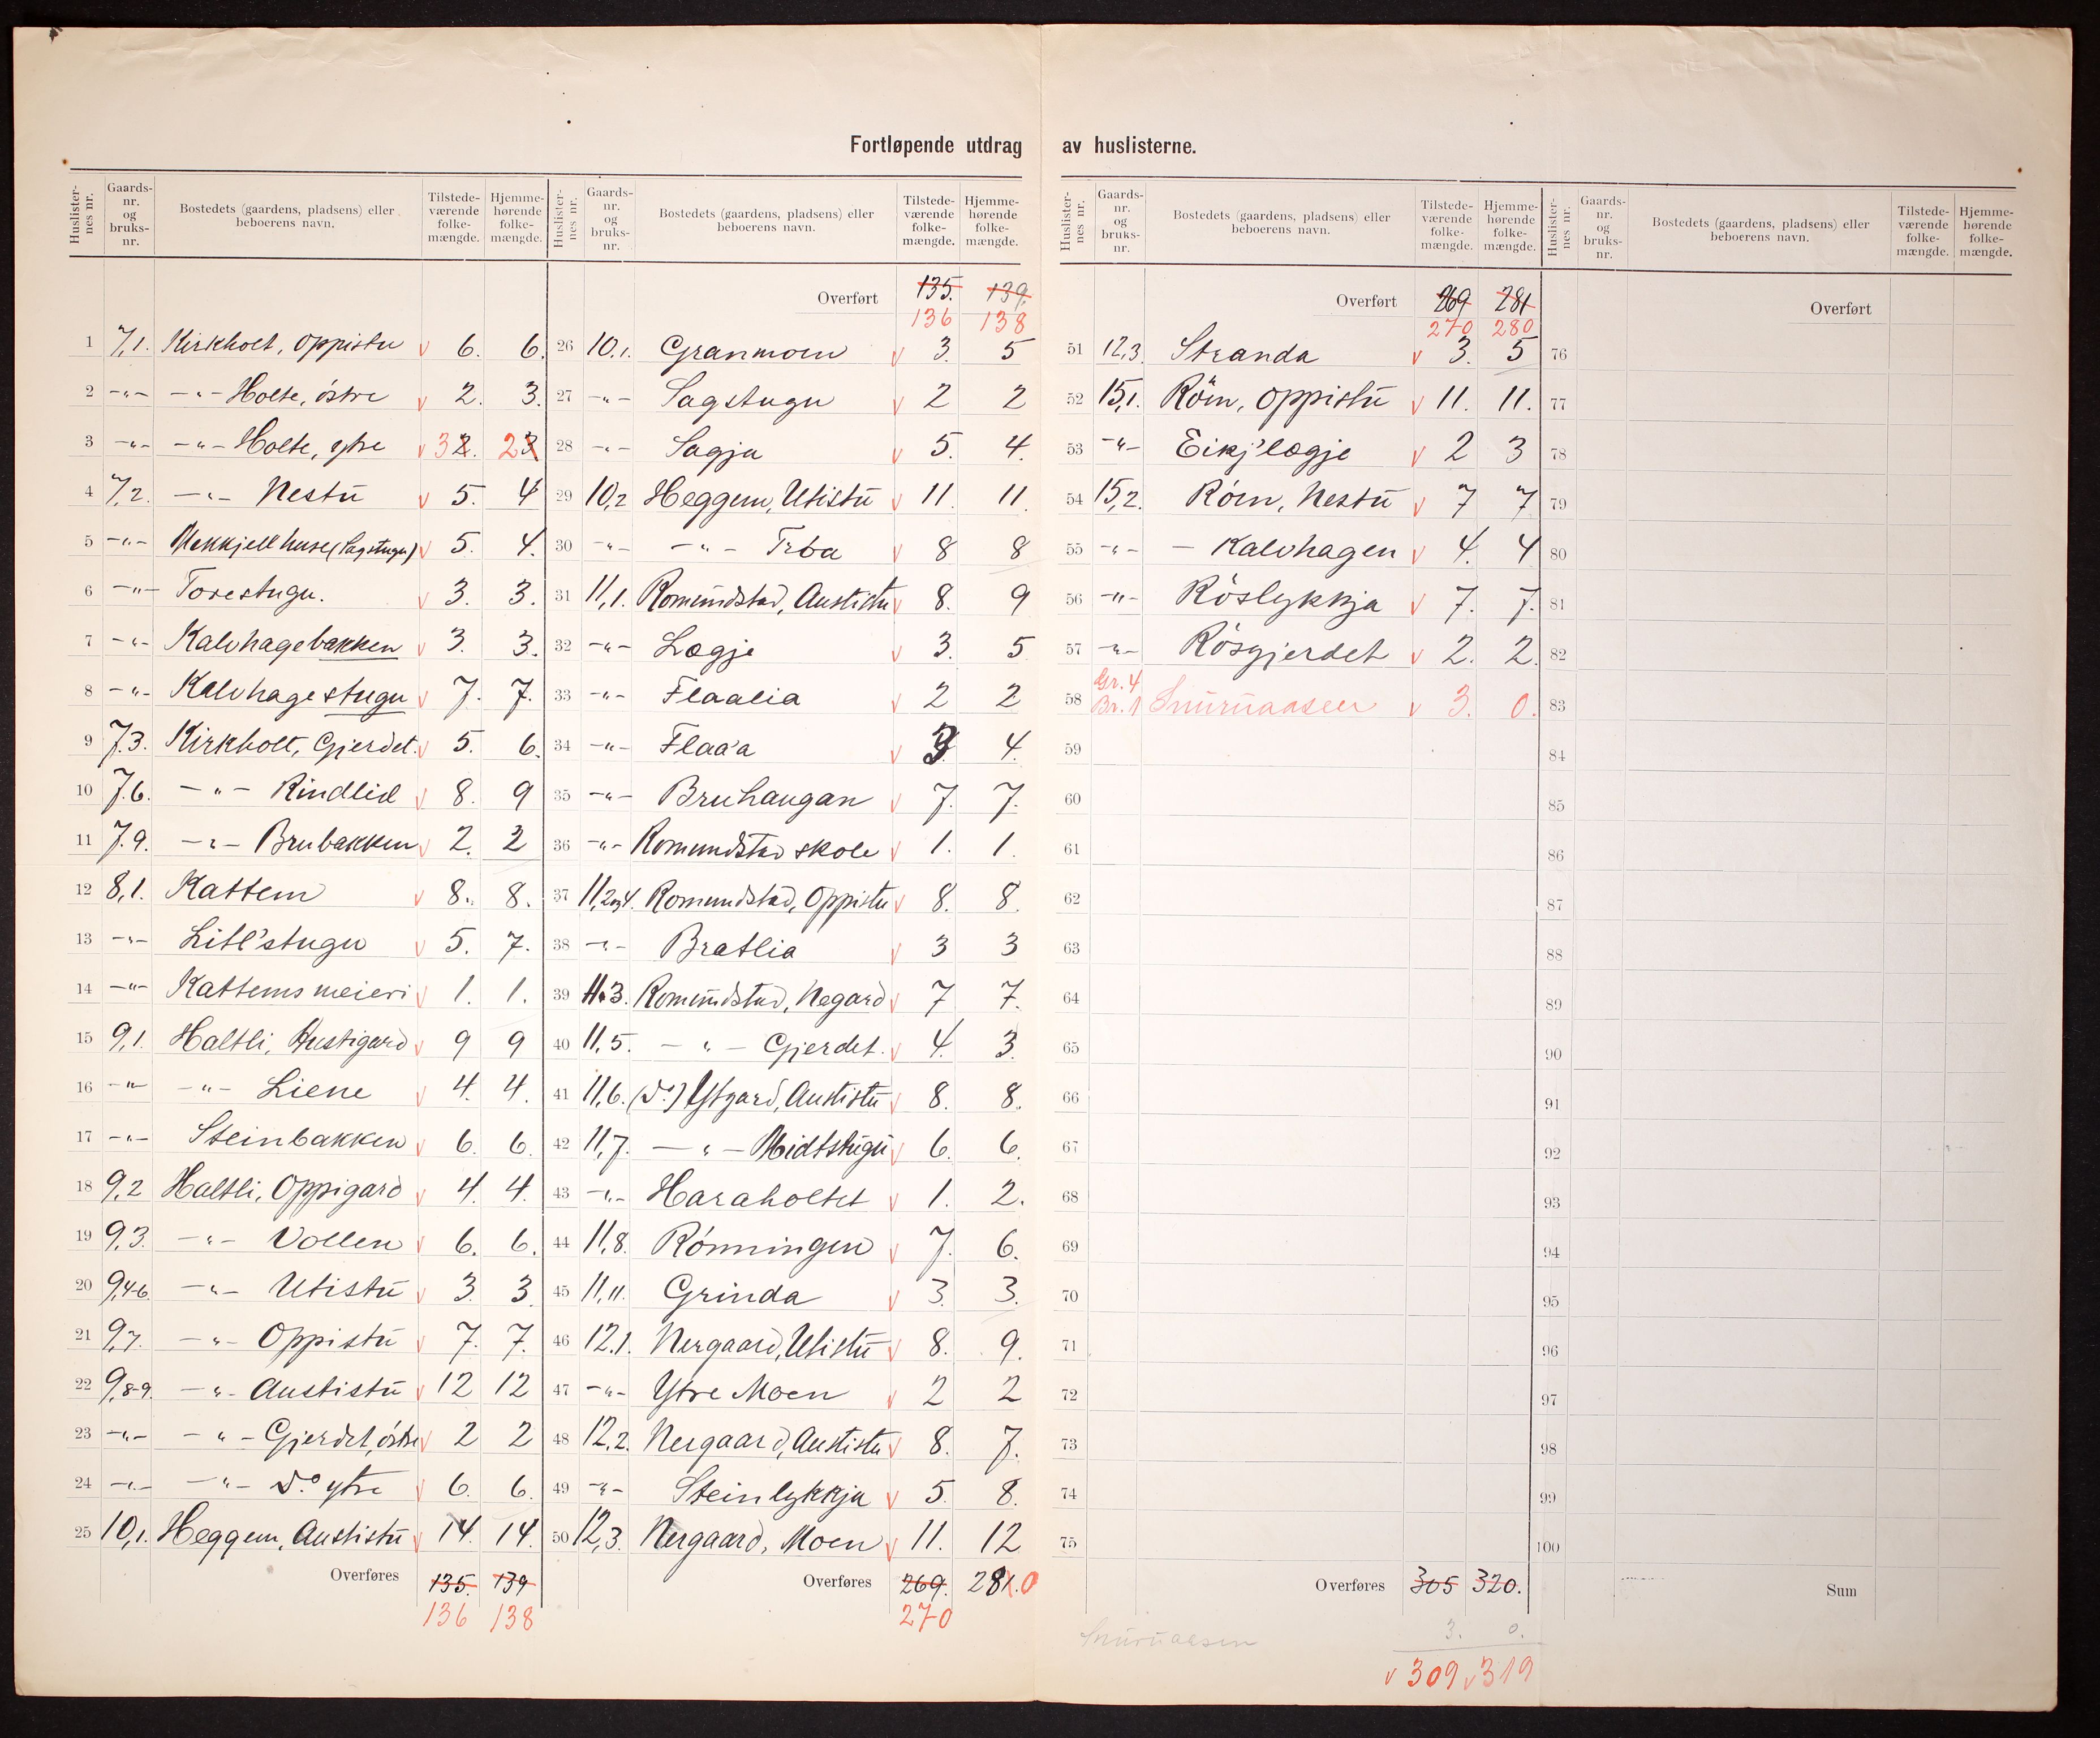 Fortløpende utdrag av huslisterne.
Huslister-nes nr. Gaards-nr. og bruks-nr. Bostedets (gaardens, pladsens) eller beboerens navn. Tilstede-værende folke-mængde. Hjemme-hørende folke-mængde.
1 7,1. Kirkholt, Oppistu v 6. 6.
2 -"- -"- Holte, östre v 2. 3.
3 -"- -"- Holte, ytre v 3 2. 2 3
4 7,2. -"- Nestu v 5. 4
5 -"- Mekkjellhuse (Sagstugu) v 5. 4.
6 -"- Torestugu. v 3. 3.
7 -"- Kalvhagebakken v 3. 3.
8 -"- Kalvhagestugu v 7. 7.
9 7.3. Kirkholt, Gjerdet. v 5. 6.
10 7.6. -"- Rindlid v 8. 9
11 7.9. -"- Brubakken v 2. 2
12 8,1. Kattem v 8. 8.
13 -"- Litl'stugu v 5. 7.
14 -"- Kattems meieri v 1. 1.
15 9,1. Haltli, Austigard v 9 9
16 -"- -"- Liene v 4. 4.
17 -"- Steinbakken v 6. 6.
18 9,2 Haltli, Oppigard v 4. 4.
19 9,3. -"- Vollen v 6. 6.
20 9,4-6. -"- Utistu v 3. 3.
21 9,7. -"- Oppistu v 7. 7.
22 9,8-9. -"- Austistu v 12 12
23 -"- -"- Gjerdet, östre v 2 2
24 -"- -"- Do ytre v 6. 6.
25 10,1. Heggem, Austistu v 14. 14.
Overføres 135. 139
136 138
Huslister-nes nr. Gaards-nr. og bruks-nr. Bostedets (gaardens, pladsens) eller beboerens navn. Tilstede-værende folke-mængde. Hjemme-hørende folke-mængde.
Overført 135. 139.
136 138
26 10.1. Granmoen v 3. 5
27 -"- Sagstugu v 2 2
28 -"- Sagja v 5. 4.
29 10,2 Heggem, Utistu v 11. 11.
30 -"- -"- Trøa v 8 8
31 11,1. Romundstad, Austistu v 8. 9
32 -"- Løgje v 3. 5
33 -"- Flaalia v 2 2
34 -"- Flaa'a v 3. 4.
35 -"- Bruhaugan v 7. 7.
36 -"- Romundstad skole v 1. 1.
37 11,2og4. Romundstad, Oppistu v 8. 8.
38 -"- Bratlia v 3 3
39 11.3. Romundstad, Negard v 7 7.
40 11,5. -"- Gjerdet. v 4. 3.
41 11,6. (Do) Ytgard, Austistu v 8. 8.
42 11,7. -"- Midtstugu v 6. 6.
43 -"- Haraholtet v 1. 2.
44 11,8. Rónningen v 7. 6.
45 11,11. Grinda v 3. 3.
46 12.1. Nergaard, Utistu v 8. 9.
47 -"- Ytre Moen v 2 2
48 12.2. Nergaard, Austistu v 8. 7.
49 -"- Steinlykkja v 5. 8.
50 12,3. Nergaard, Moen v 11. 12
Overføres 269. 281.0
270
Huslister-nes nr. Gaards-nr. og bruks-nr. Bostedets (gaardens, pladsens) eller beboerens navn. Tilstede-værende folke-mængde. Hjemme-hørende folke-mængde.
Overført 269 281
270 280
51 12,3. Stranda v 3. 5
52 15,1. Röen, Oppistu v 11. 11.
53 -"- Eikj'løgje v 2 3
54 15,2. Röen, Nestu v 7 7
55 -"- - Kalvhagen v 4. 4
56 -"- Röslykkja v 7. 7.
57 -"- Rösgjerdet v 2. 2.
58 Gr. 4 Br. 1 Snuruaasen v 3. 0.
59
60
61
62
63
64
65
66
67
68
69
70
71
72
73
74
75
Overføres 305 320.
Snuruaasen 3. 0.
v 309 v 319
Huslister-nes nr. Gaards-nr. og bruks-nr. Bostedets (gaardens, pladsens) eller beboerens navn. Tilstede-værende folke-mængde. Hjemme-hørende folke-mængde.
Overført
76
77
78
79
80
81
82
83
84
85
86
87
88
89
90
91
92
93
94
95
96
97
98
99
100
Sum